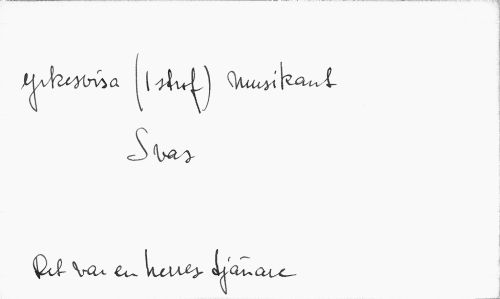 Yrkesvisa (1 strof) Musikant
Svar
Det var en herres tjänare